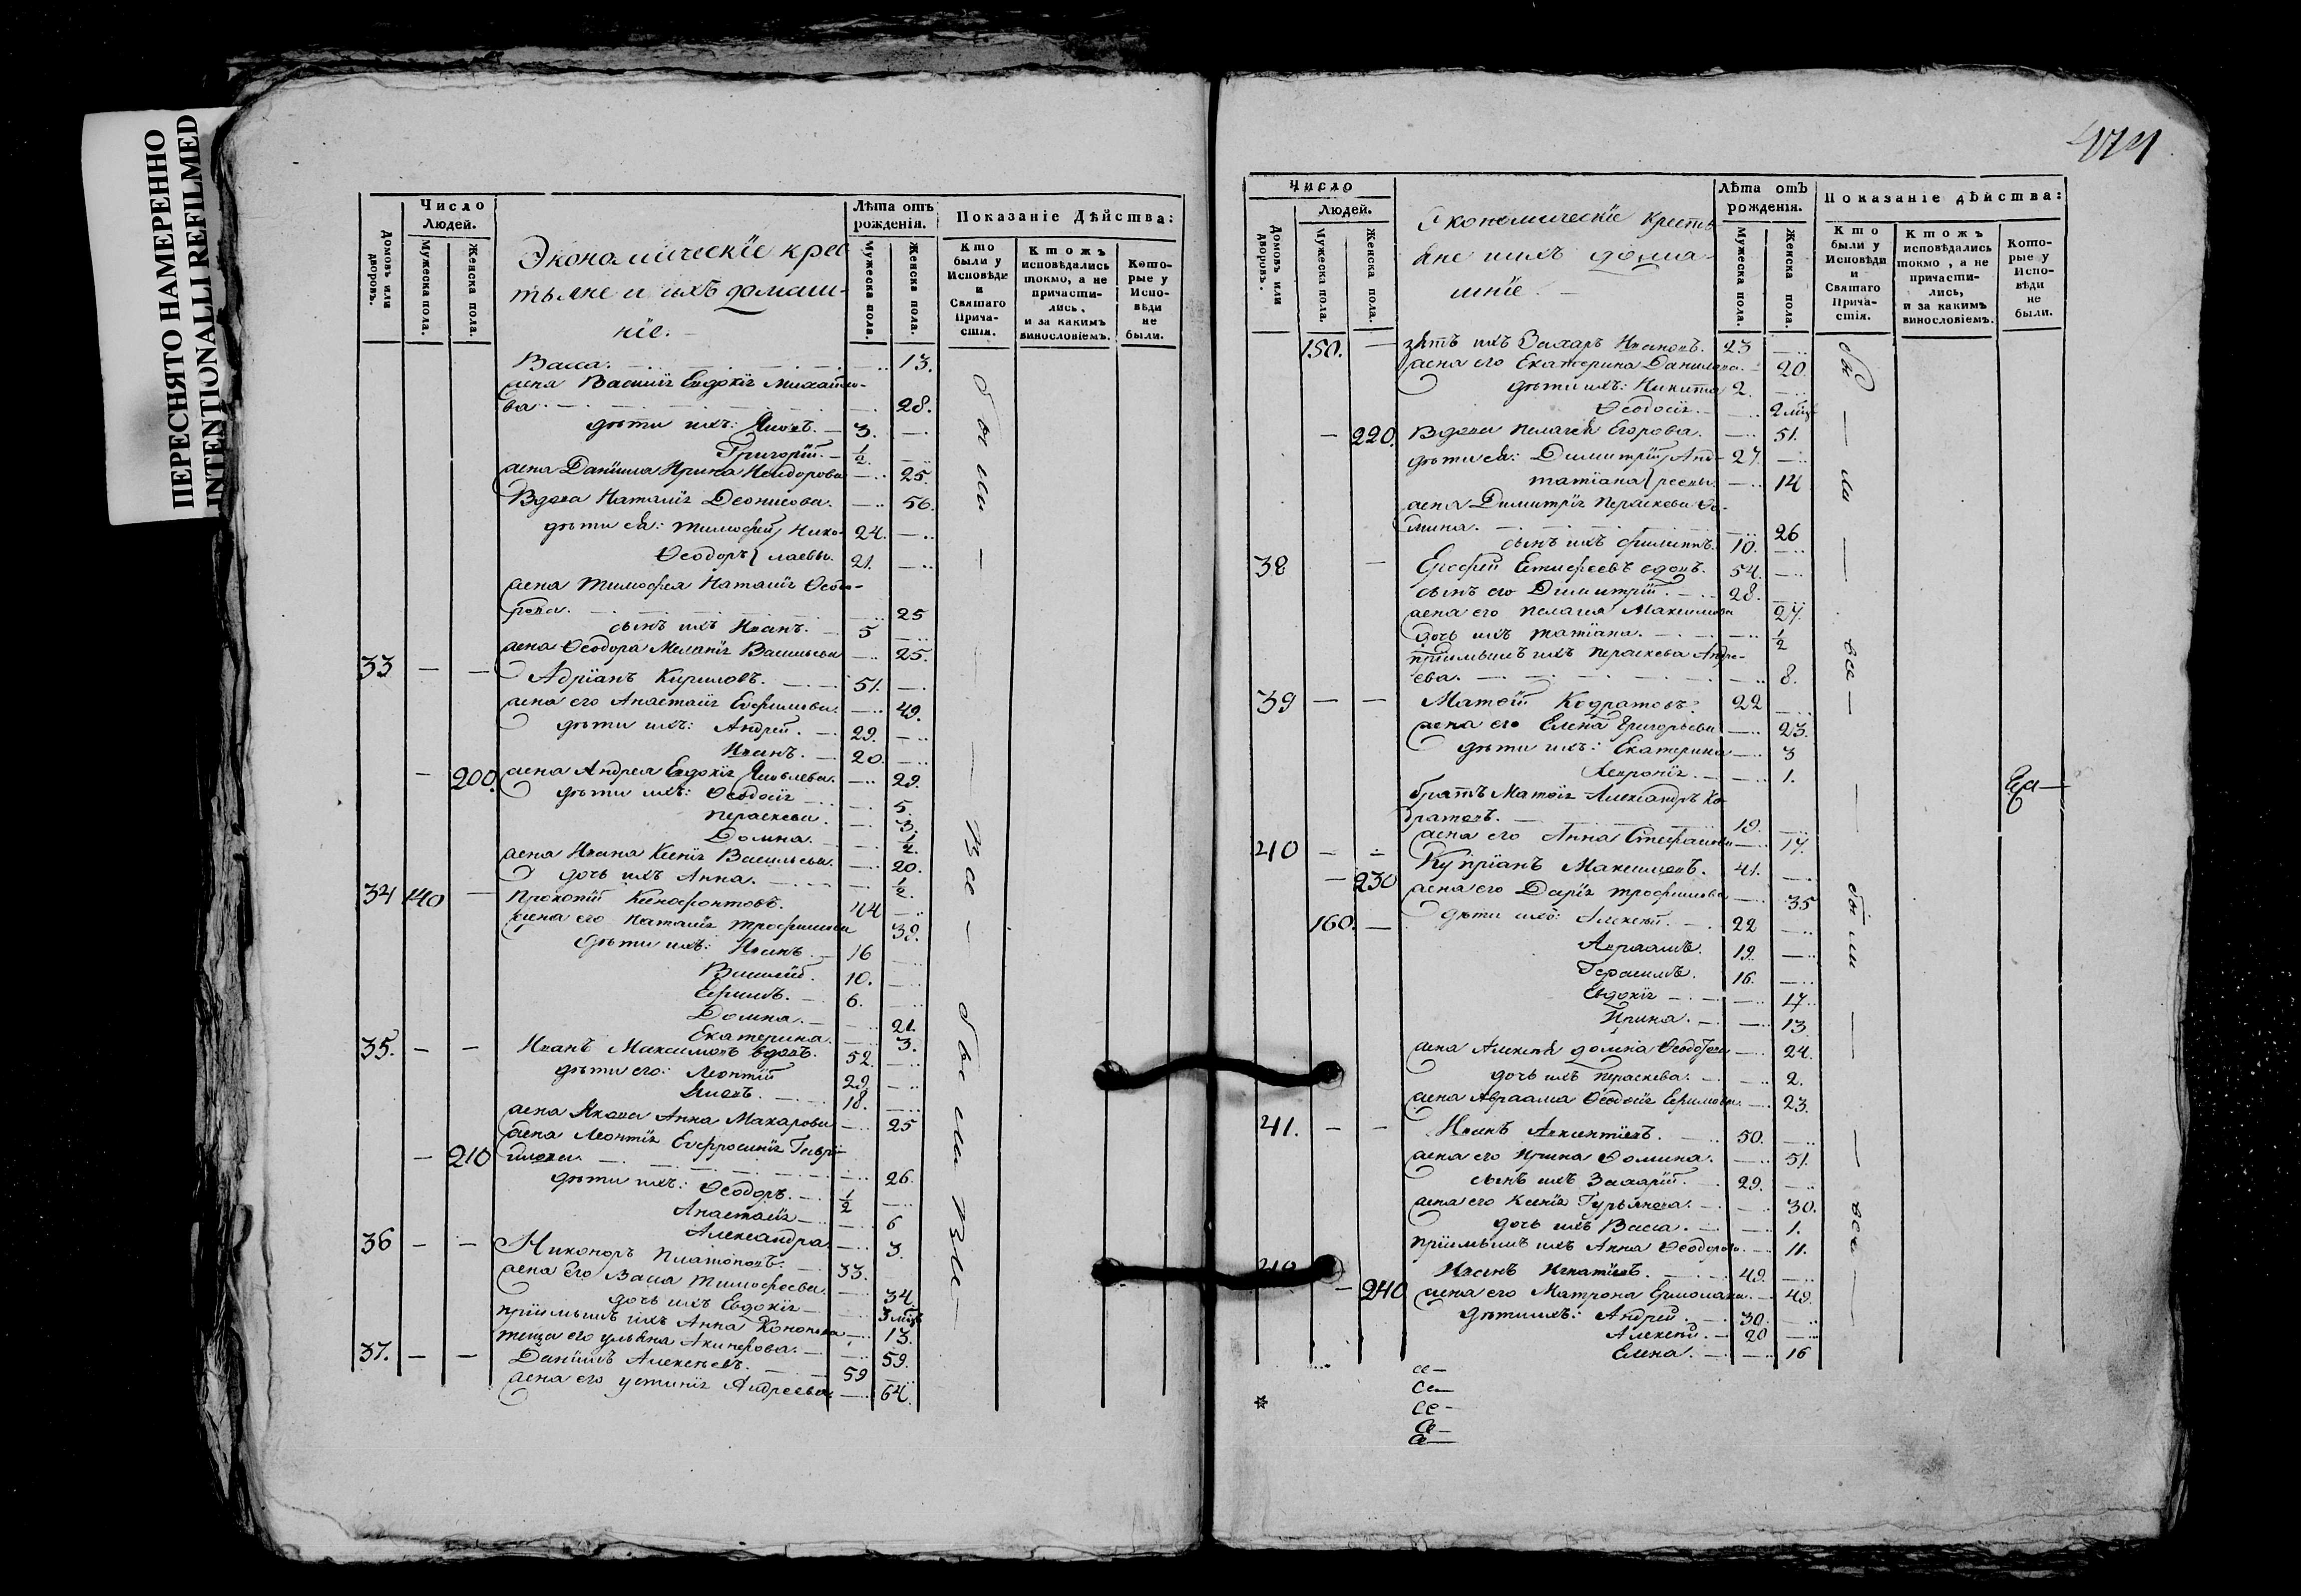 ПЕРЕСНЯТО НАМЕРЕННО
INTENTIONALLI REFILMED
Число
Людей.
Домовъ или дворовъ.
Мужеска пола.
Женска пола.
Экономическіе крес
тьяне и ихъ домаш-
ніе.
Лѣта отъ рожденія.
Мужеска пола.
Женска пола.
Показаніе Дѣйства:
Кто были у Исповѣди и Святаго Прича-стія.
Ктожъ исповѣдались токмо, а не причасти-лись, и за какимъ винословіемъ.
Кото-рые у Испо-вѣди не были.
Васса. 13.
жена Василія Евдокія Михайло-
ва. 28.
дѣти ихъ: Яковъ. 3.
Григорій. ½.
жена Даніила Ирина Исидорова 25.
Вдова Наталія Деонисова. 56.
дѣти ея: Тимофей Нико- 24.
Ѳеодоръ лаевы. 21.
жена Тимофея Наталія Ѳеодо-
рова. 25
сынъ ихъ Иванъ. 5
жена Ѳеодора Меланія Васильева 25.
33 Адріанъ Кириловъ. 51.
жена его Анастасія Евфимова. 49.
дѣти ихъ: Андрей. 29.
Иванъ. 20.
200. жена Андрея Евдокія Яковлева. 29.
дѣти ихъ: Ѳеодосія 5.
Параскева. 3.
Домна. ½.
жена Ивана Ксенія Васильева. 20.
дочь ихъ Анна. ½.
34 140 Прокопій Ксенофонтовъ. 44
жена его Наталія Трофимова 38.
дѣти ихъ: Иванъ 16
Василій. 10.
Ефимъ. 6.
Домна. 21.
Екатерина. 3.
35. Иванъ Максимовъ вдовъ. 52.
дѣти его: Леонтій 29.
Яковъ. 18.
жена Якова Анна Макарова 25
210 жена Леонтія Евфросинія Гаврі-
илова. 26.
дѣти ихъ: Ѳеодоръ. ½
Анастасія 6
Александра 3.
36 Никоноръ Платоновъ. 33.
жена его Васса Тимофеева. 34.
дочь ихъ Евдокія 3 мѣс
пріимышъ ихъ Анна Кононова 13.
теща его Ульяна 59.
37. Даніилъ Алексѣевъ. 59
жена его Устинія Андреева 64.
были
вси
были
вси
474
Число
Людей.
Домовъ или дворовъ.
Мужеска пола.
Женска пола.
Экономическіе крестья
яне ихъ дома-
шніе.
Лѣта отъ рожденія.
Мужеска пола.
Женска пола.
Показаніе дѣйства:
Кто были у Исповѣди и Святаго Прича-стія.
Ктожъ исповѣдались токмо, а не причасти-лись, и за какимъ винословіемъ.
Кото-рые у Испо-вѣди не были.
150. зять ихъ Захаръ Ивановъ. 23
жена его Екатерина Данилова. 20.
дѣти ихъ: Никита 2.
Ѳеодосія. 2 мѣс
220. Вдова Пелагея Егорова. 51.
дѣти ея: Димитрій Анд- 27.
Татіана реевы. 14
жена Димитрія Параскева Ѳо-
мина. 26
сынъ ихъ Филиппъ. 10.
38 Ерофей вдовъ. 54.
сынъ его Димитрій. 28.
жена его Пелагея Максимова 27.
дочь ихъ Татіана. ½
пріимышъ ихъ Параскева Андре-
ева. 8.
39 Матѳій Кодратовъ. 22
жена его Елена Григорьева 23.
дѣти ихъ: Екатерина 3
1.
братъ Матѳія Александръ Ко-
дратовъ. 19.
жена его Анна Стефанова 17.
40 Купріанъ Максимовъ. 41.
230 жена его Дарія Трофимова 35
160. дѣти ихъ: Алексѣй. 22
Авраамъ. 19.
Герасимъ. 16.
Евдокія 17.
Ирина. 13.
жена Алексѣя Домна 24.
дочь ихъ Параскева. 2.
жена Авраама Ѳеодосія Ефимова. 23.
41. Иванъ Авксентіевъ. 50.
жена его Ирина Ѳомина. 51.
сынъ ихъ Захарій. 29.
жена его Ксенія Гурьянова. 30.
дочь ихъ Васса. 1.
пріимышъ ихъ Анна Ѳеодорова. 11.
Иванъ Игнатіевъ. 49.
240 жена его Матрона Ермолаева. 49.
дѣти ихъ: Андрей 30.
Алексѣй. 20
Елена. 16
бы
ли
все
были
все